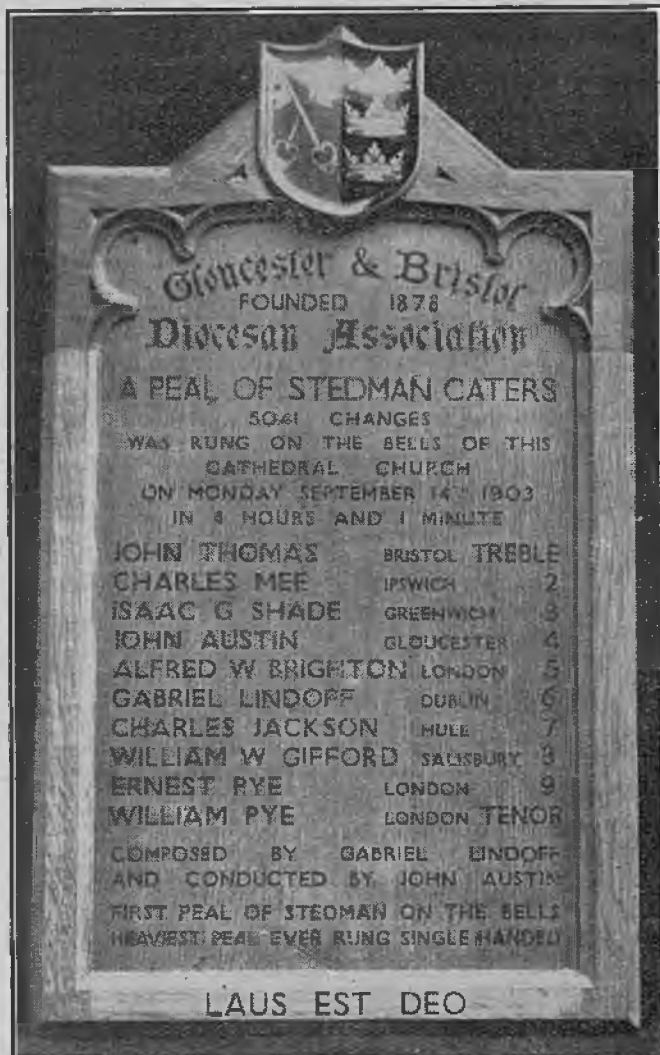 Gloucester & Bristol
FOUNDED 1878
Diocesan Association
A PEAL OF STEDMAN CATERS
5041 CHANGES
WAS RUNG ON THE BELLS OF THIS
CATHEDRAL CHURCH
ON MONDAY SEPTEMBER 14TH 1903
IN 4 HOURS AND 1 MINUTE
JOHN THOMAS BRISTOL TREBLE
CHARLES MEE IPSWICH 2
ISAAC G SHADE GREENWICH 3
JOHN AUSTIN GLOUCESTER 4
ALFRED W BRIGHTON LONDON 5
GABRIEL LINDOFF DUBLIN 6
CHARLES JACKSON HULL 7
WILLIAM W GIFFORD SALISBURY 8
ERNEST PYE LONDON 9
WILLIAM PYE LONDON TENOR
COMPOSED BY GABRIEL LINDOFF
AND CONDUCTED BY JOHN AUSTIN
FIRST PEAL OF STEDMAN ON THE BELLS
HEAVIEST PEAL EVER RUNG SINGLE HANDED
LAUS EST DEO